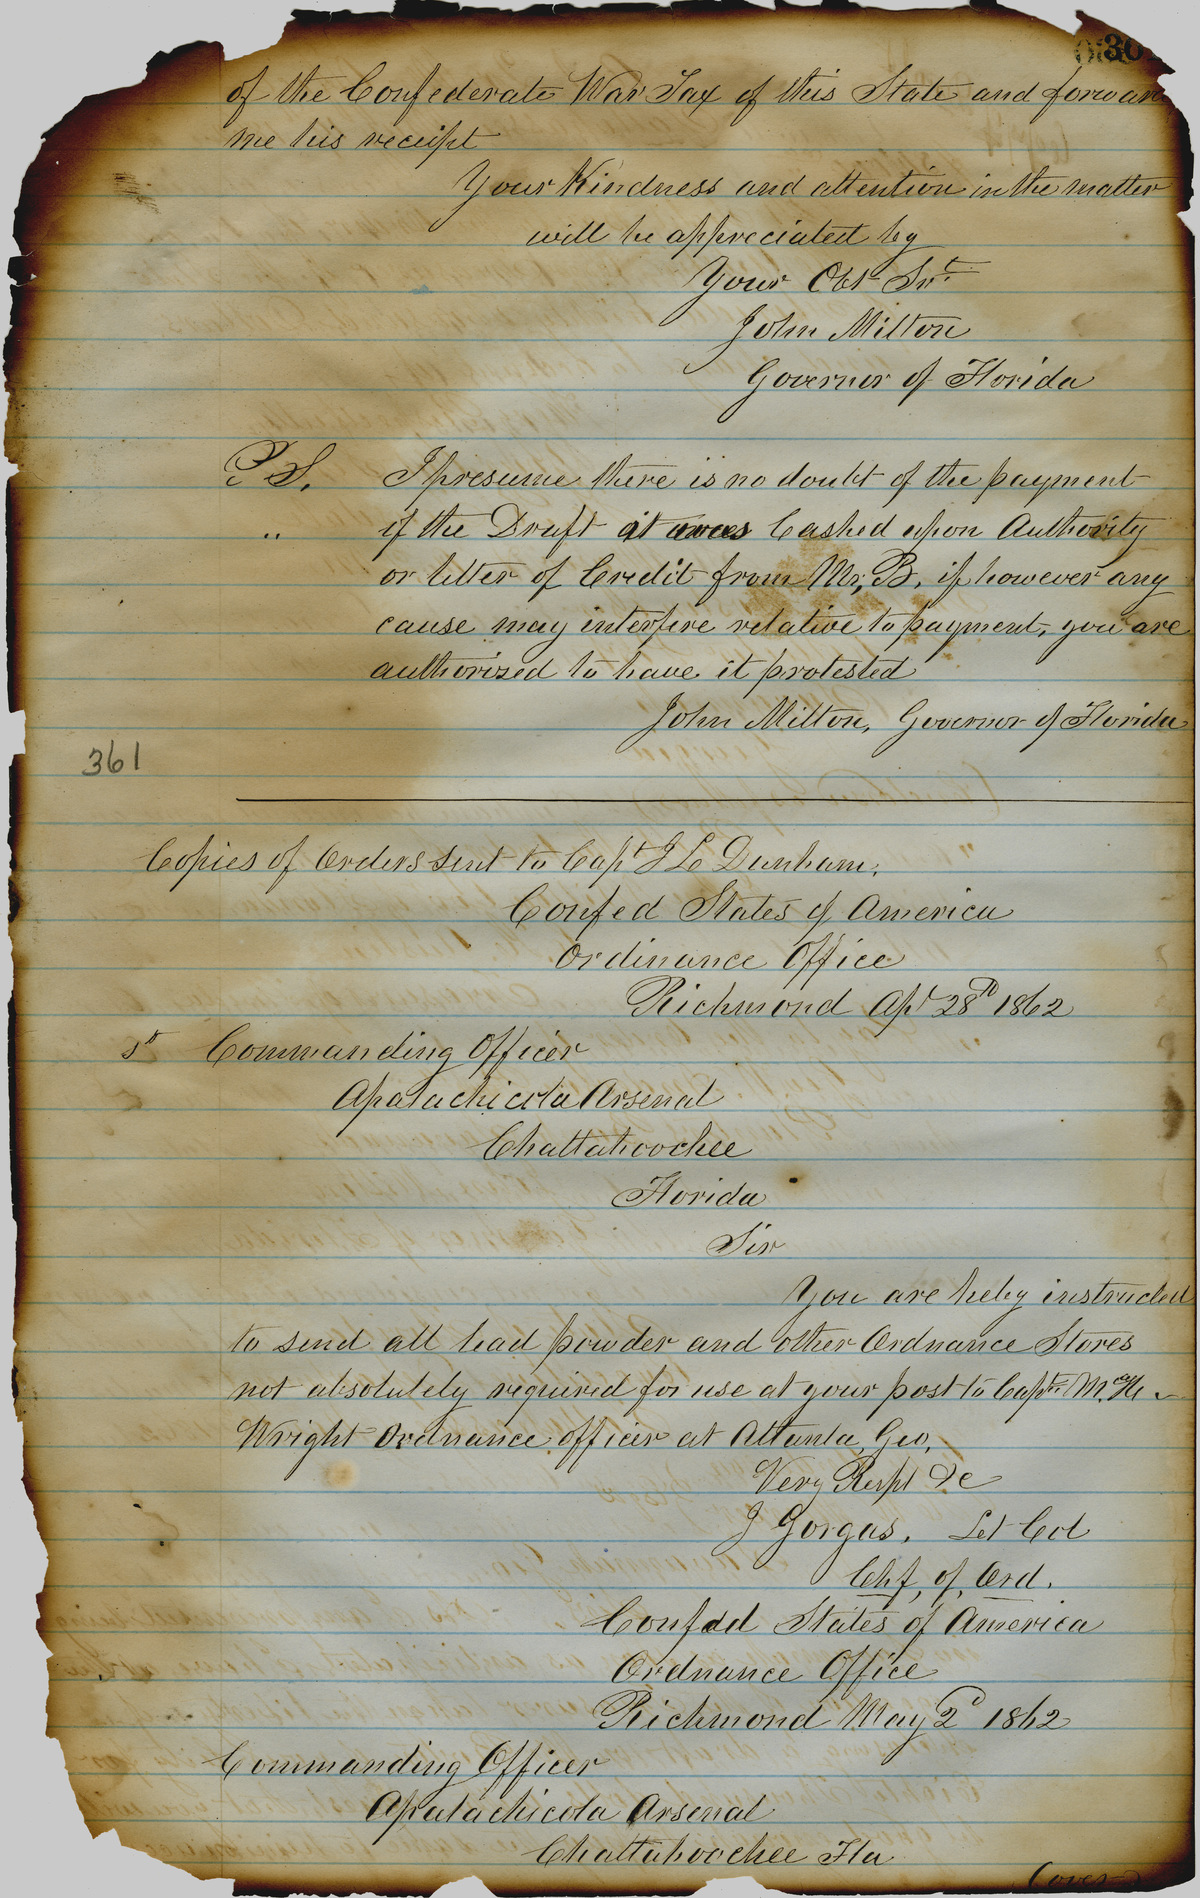 30
of the Confederate War Tax of this State and forward
me his receipt
Your Kindness and attention in the matter
will be appreciated by
Your Obt Svt.
John Milton
Governor of Florida
P.S. I presume there is no doubt of the payment
" if the Draft it was Cashed upon Authority
or letter of Credit from Mr, B, if however any
cause may interfere relative to payment, you are
authorized to have it protested
John Milton, Governor of Florida
361
Copies of Orders sent to Capt J L Dunham,
Confed States of America
Ordinance Office
Richmond Apl 28th 1862
Commanding Officer
Apalachicola Arsenal
Chattahoochee
Florida
Sir
You are heby instructed
to send all lead powder and other Ordnance Stores
not absolutely required for use at your post to Capt. M. H.
Wright Ordnance officer at Atlanta, Geo,
Very Respt &c
J Gorgas, Lt Col
Chf, of, Ord.
Confdd States of America
Ordnance Office
Richmond May 2d 1862
Commanding Officer
Apalachicola Arsenal
Chattahoochee Fla
(over)